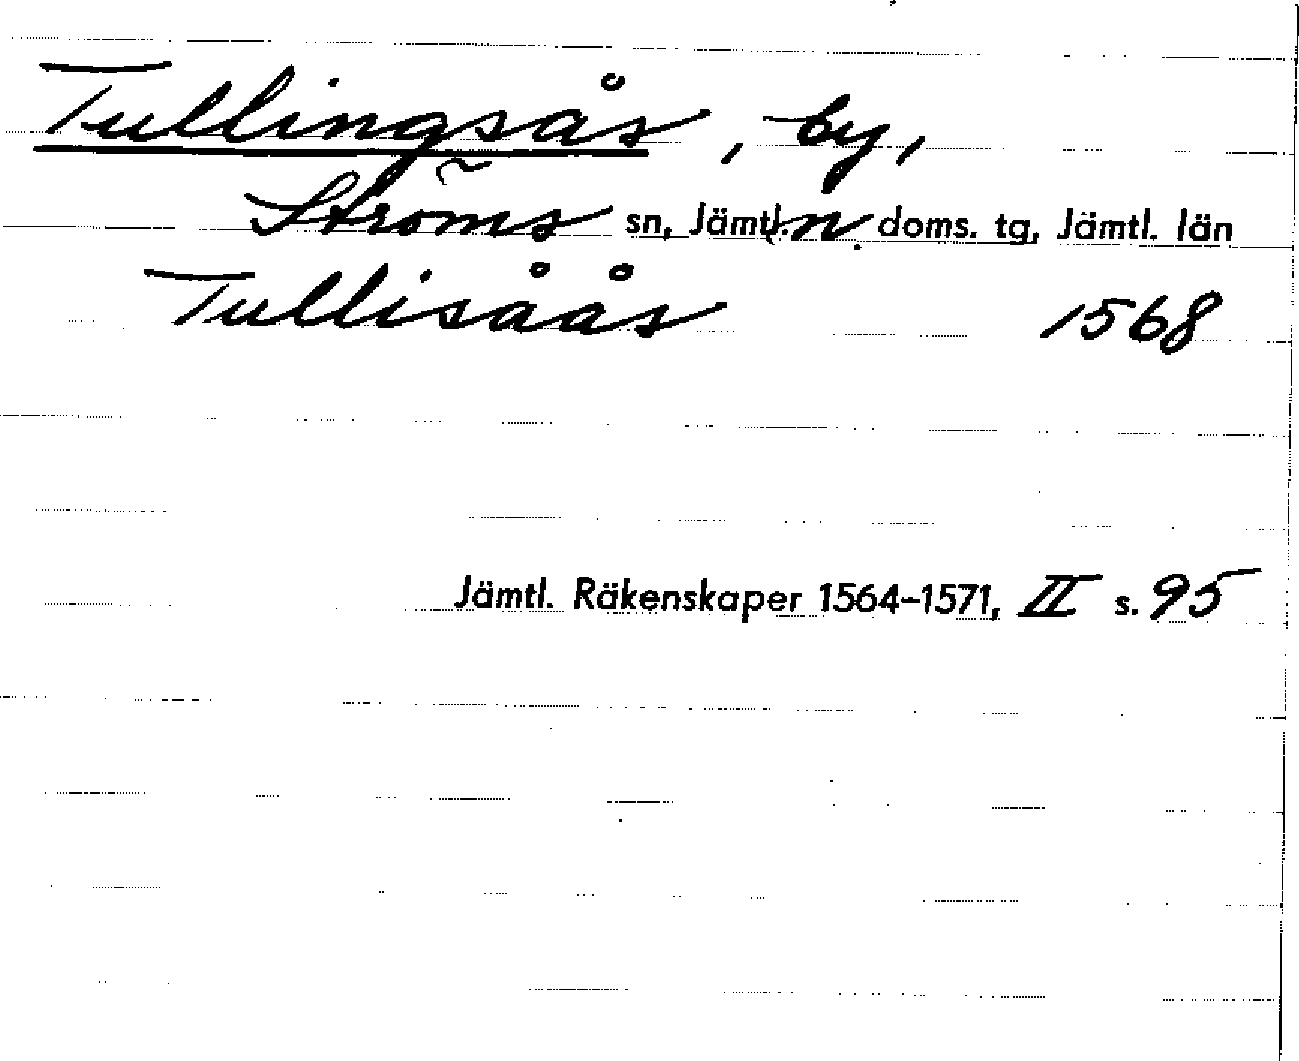 Tullingsås, by,
Ströms sn, Jämtl. n. doms. tg, Jämtl. län
Tullisåås 1568
Jämtl. Räkenskaper 1564-1571, II s. 95